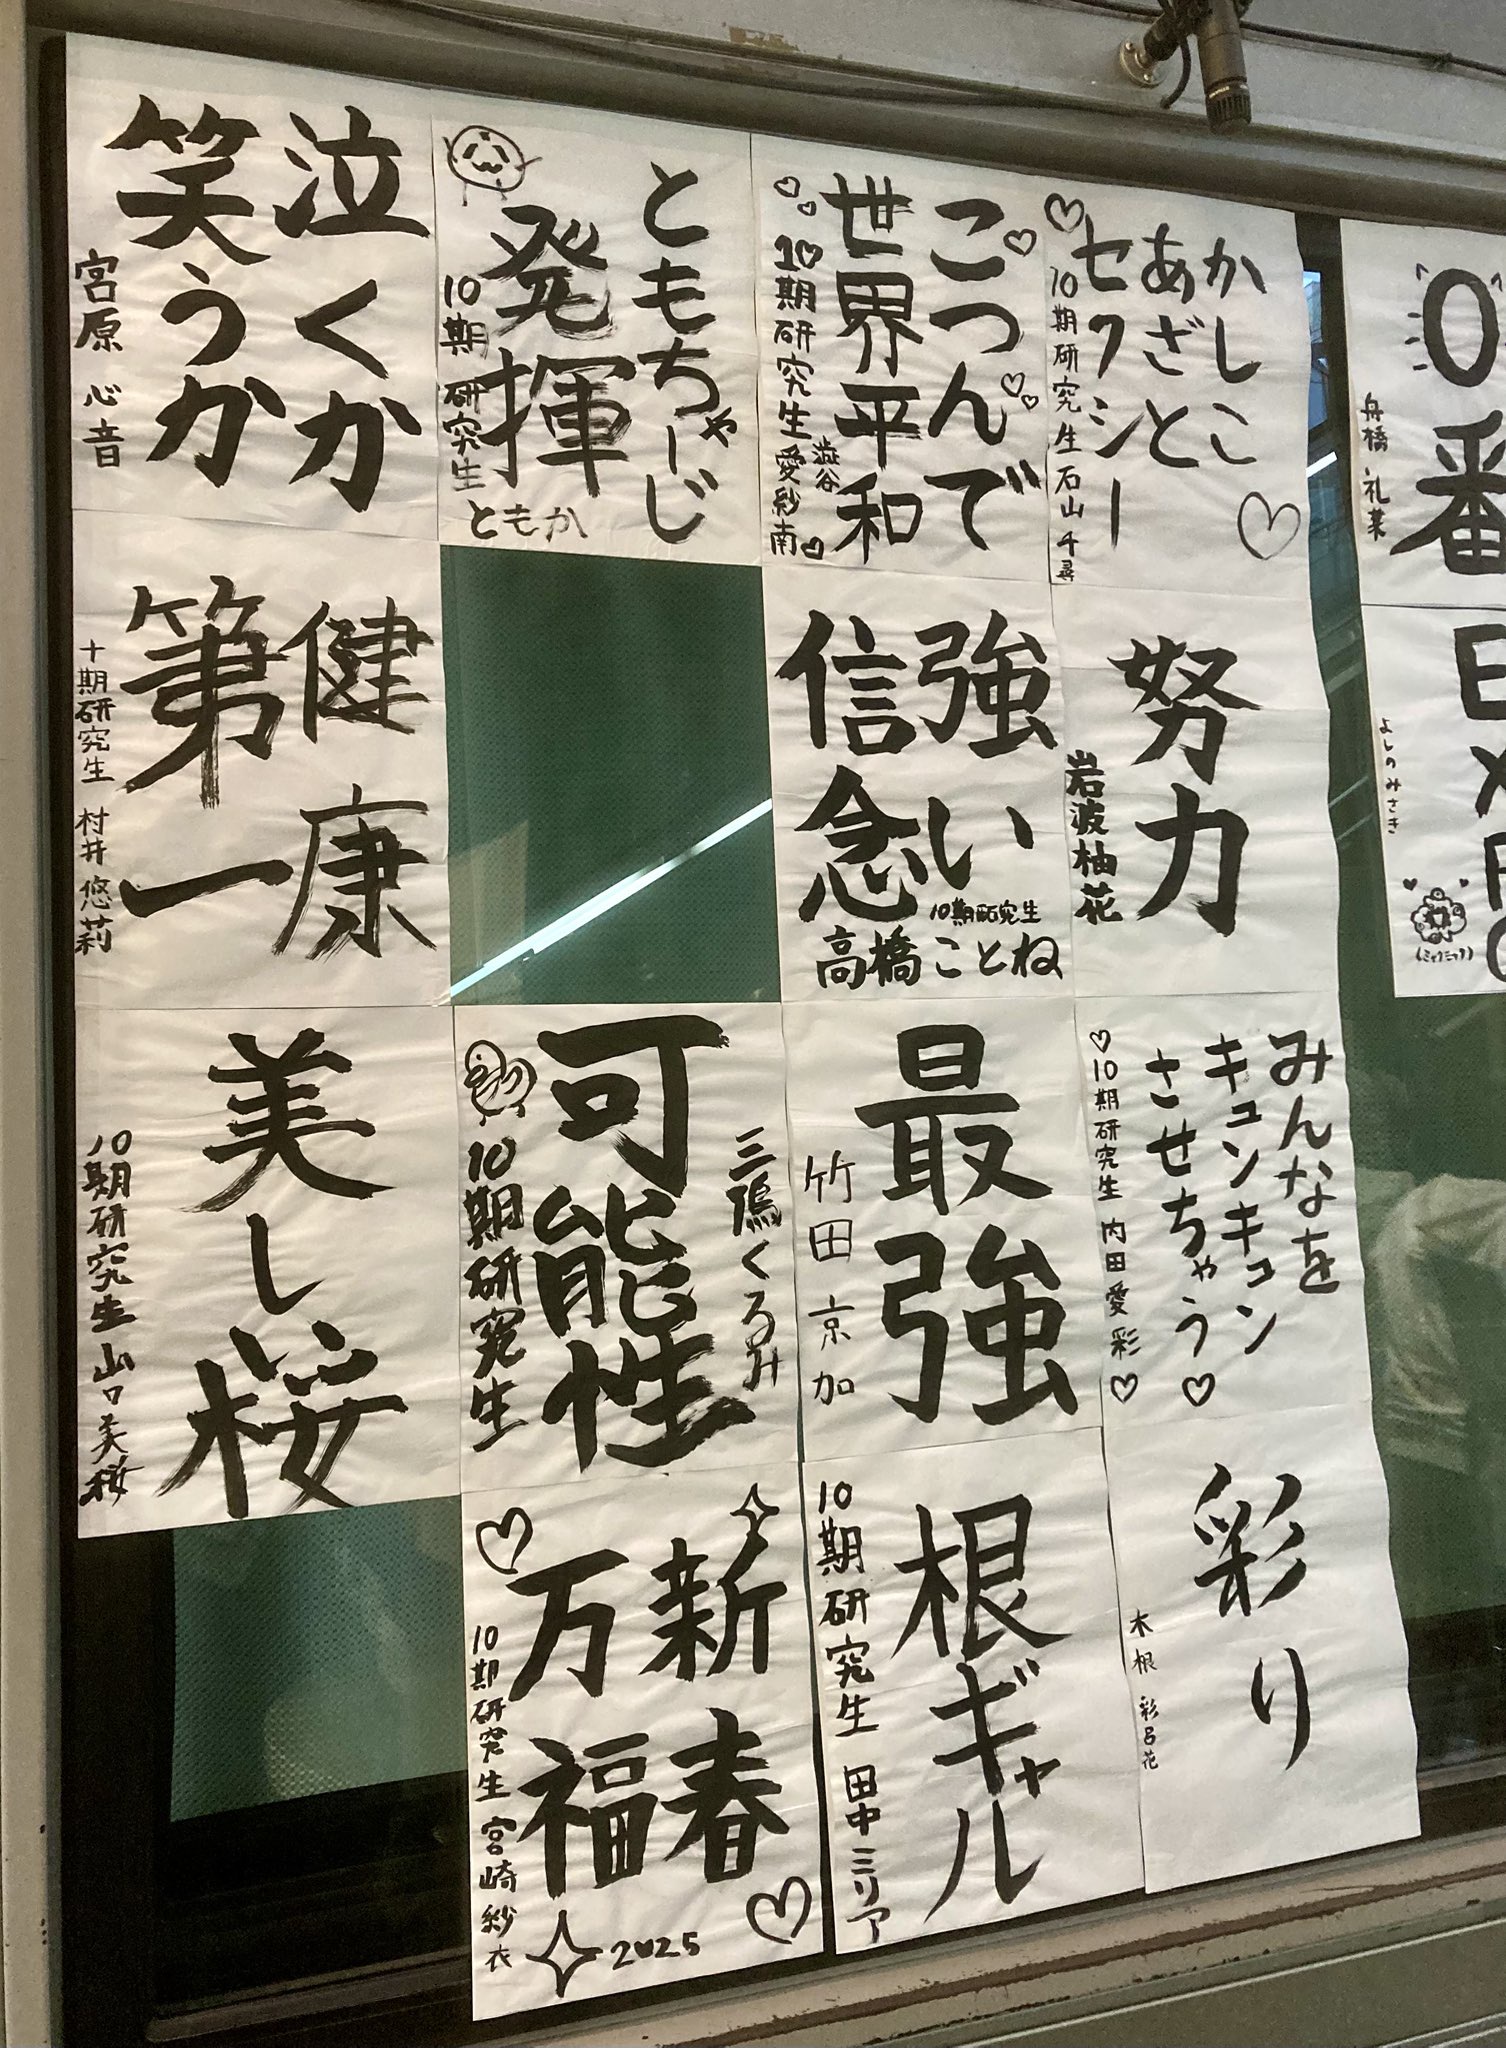 泣くか
笑うか
宮原 心音
ともちゃーじ
発揮
10期研究生
ともか
ごつんで
世界平和
10期研究生
澁谷
愛紗南
かしこ
あざと
セクシー
10期研究生 石山千尋
0番
舟橋 礼菜
健康
第一
十期研究生 村井悠莉
強い
信念
10期研究生
高橋ことね
努力
岩波柚花
EXPO
よしのみさき
(ミャクミャク)
美し桜
10期研究生 山口美桜
三鴈くるみ
可能性
10期研究生
最強
竹田京加
みんなを
キュンキュン
させちゃう
10期研究生 内田愛彩
新春
万福
10期研究生 宮崎紗衣
2025
根ギャル
10期研究生 田中ミリア
彩り
木根 彩呂花